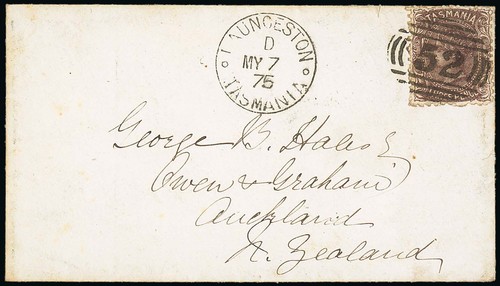 LAUNCESTON
D
MY 7
75
TASMANIA
TASMANIA
52
George B. Hales
Owen & Graham
Auckland
N. Zealand